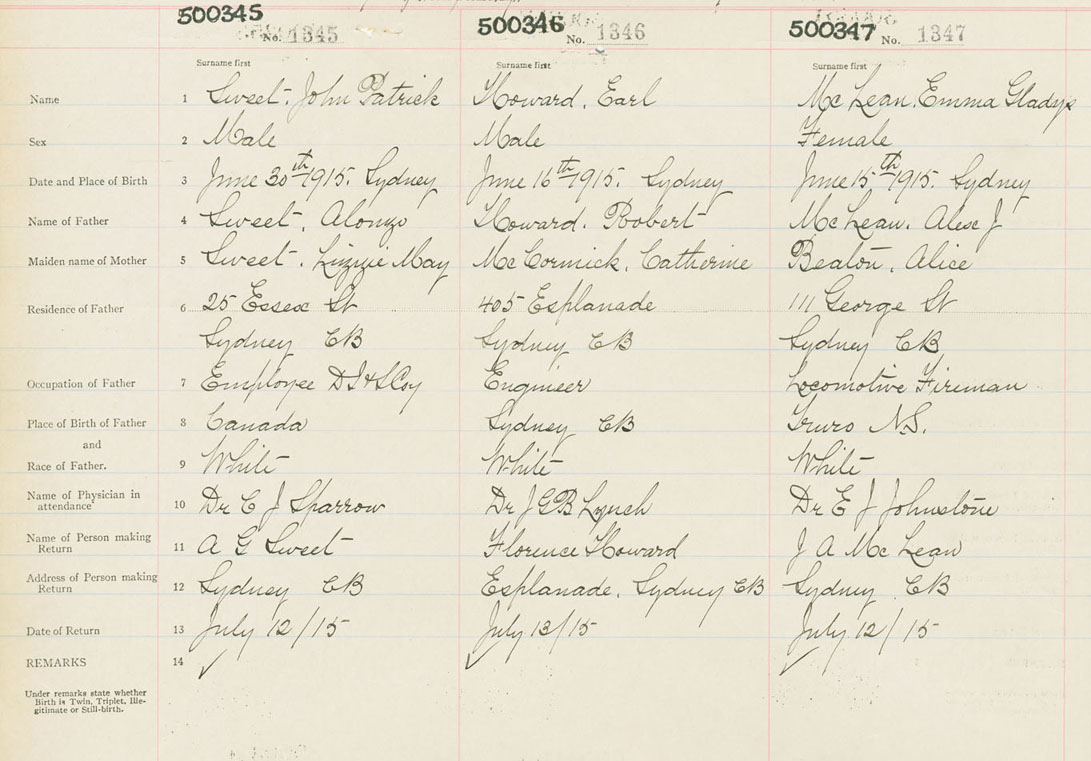 500345 500346 500347
No. 1345 No. 1346 No. 1347
Surname first Surname first Surname first
Name 1 Sweet, John Patrick Howard, Earl McLean, Emma Gladys
Sex 2 Male Male Female
Date and Place of Birth 3 June 30th 1915. Sydney June 16th 1915. Sydney June 15th 1915. Sydney
Name of Father 4 Sweet, Alonzo Howard, Robert McLean, Alex J
Maiden name of Mother 5 Sweet, Lizzie May McCormick, Catherine Beaton, Alice
Residence of Father 6 25 Essex St 405 Esplanade 111 George St
Sydney CB Sydney CB Sydney CB
Occupation of Father 7 Employee D I & S Coy Engineer Locomotive Fireman
Place of Birth of Father 8 Canada Sydney CB Truro N.S.
and
Race of Father. 9 White White White
Name of Physician in
attendance 10 Dr C J Sparrow Dr J G B Lynch Dr E J Johnstone
Name of Person making
Return 11 A G Sweet Florence Howard J A McLean
Address of Person making
Return 12 Sydney CB Esplanade, Sydney CB Sydney CB
Date of Return 13 July 12/15 July 13/15 July 12/15
REMARKS 14
Under remarks state whether
Birth is Twin, Triplet, Ille-
gitimate or Still-birth.